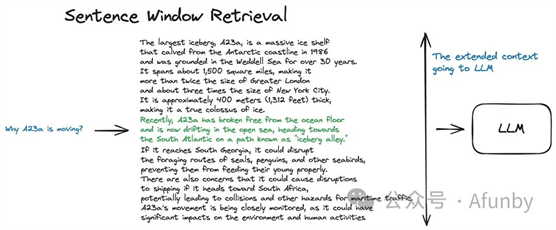 Sentence Window Retrieval
The largest iceberg, A23a, is a massive ice shelf
that calved from the Antarctic coastline in 1986
and was grounded in the Weddell Sea for over 30 years.
It spans about 1,500 square miles, making it
more than twice the size of Greater London
and about three times the size of New York City.
It is approximately 400 meters (1,312 feet) thick,
making it a true colossus of ice.
Recently, A23a has broken free from the ocean floor
and is now drifting in the open sea, heading towards
the South Atlantic on a path known as "iceberg alley."
If it reaches South Georgia, it could disrupt
the foraging routes of seals, penguins, and other seabirds,
preventing them from feeding their young properly.
There are also concerns that it could cause disruptions
to shipping if it heads toward South Africa,
potentially leading to collisions and other hazards for maritime traffic.
A23a's movement is being closely monitored, as it could have
significant impacts on the environment and human activities
Why A23a is moving?
The extended context
going to LLM
LLM
公众号 · Afunby